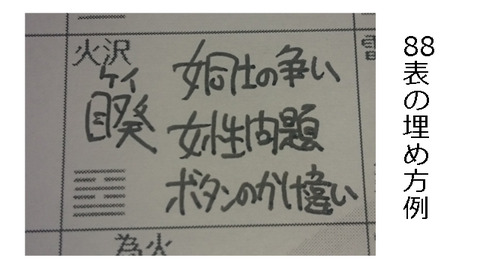 火沢
ケイ
睽
女同士の争い
女性問題
ボタンのかけ違い
為火
88表の埋め方例